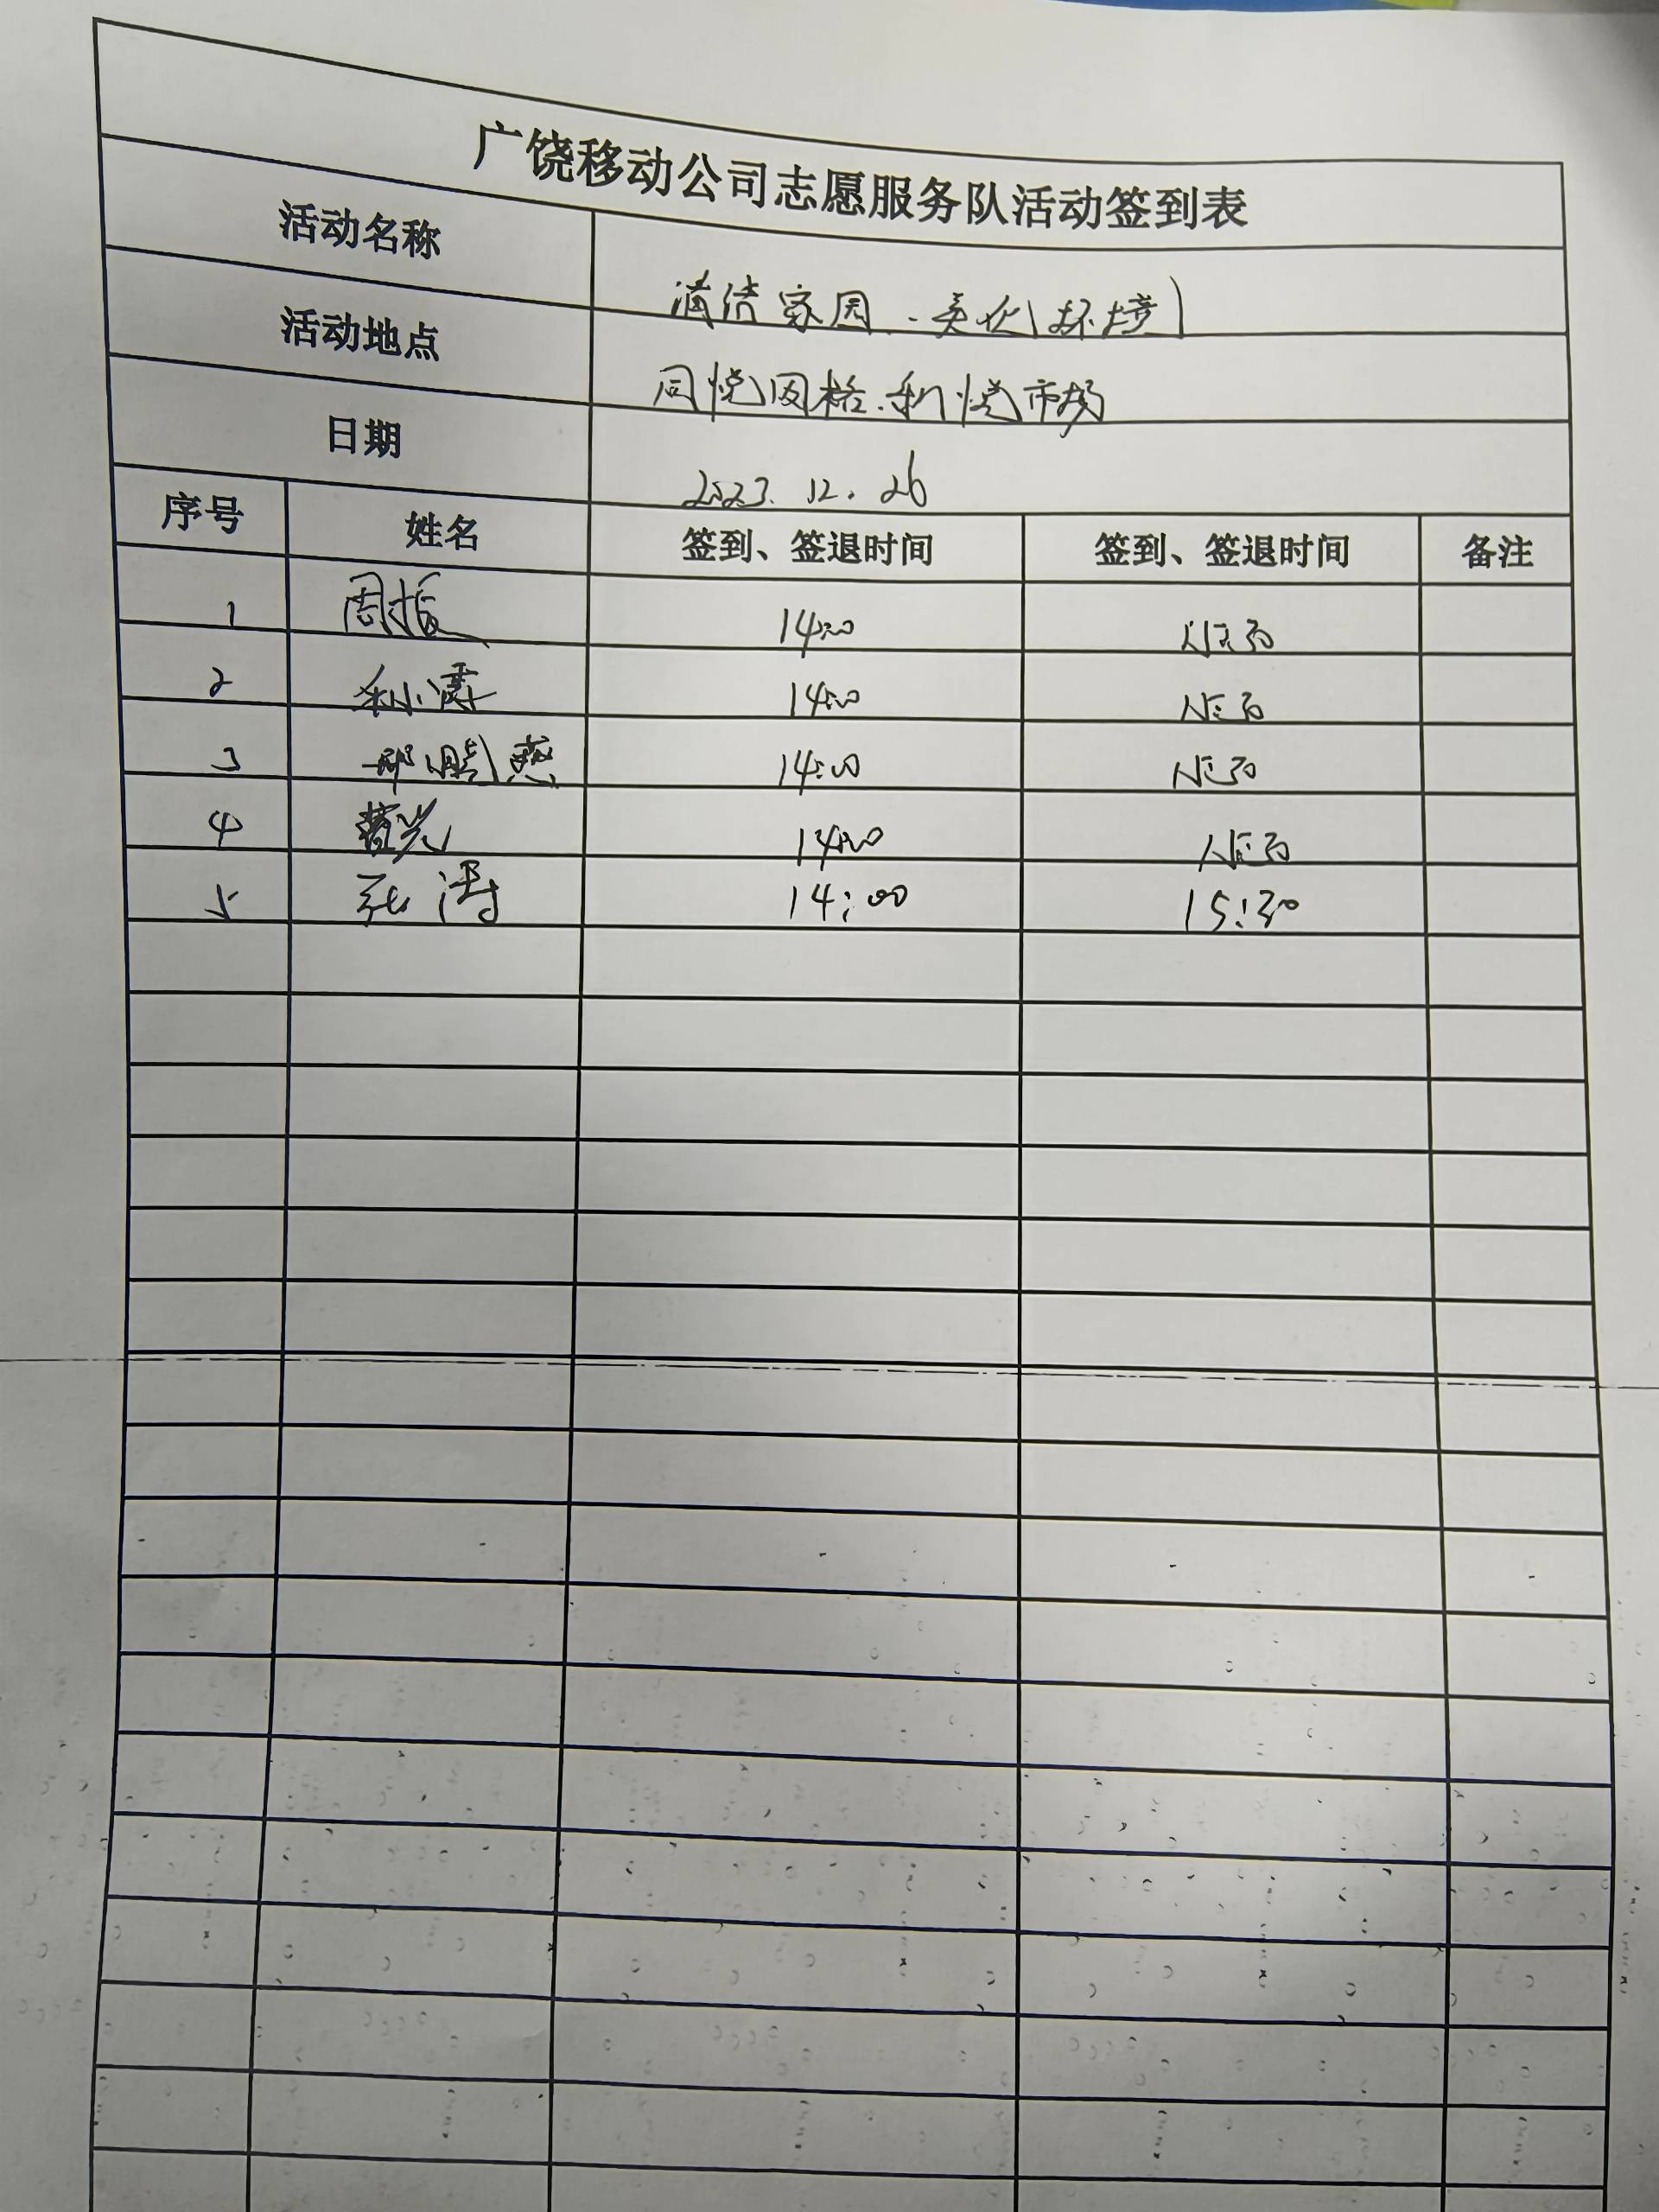 广饶移动公司志愿服务队活动签到表
活动名称 清洁家园、美化环境
活动地点 同悦网格.利悦市场
日期 2023.12.26
序号 姓名 签到、签退时间 签到、签退时间 备注
1 周振 14:00 15:30
2 14:00 15:30
3 14:00 15:30
4 14:00 15:30
5 14:00 15:30